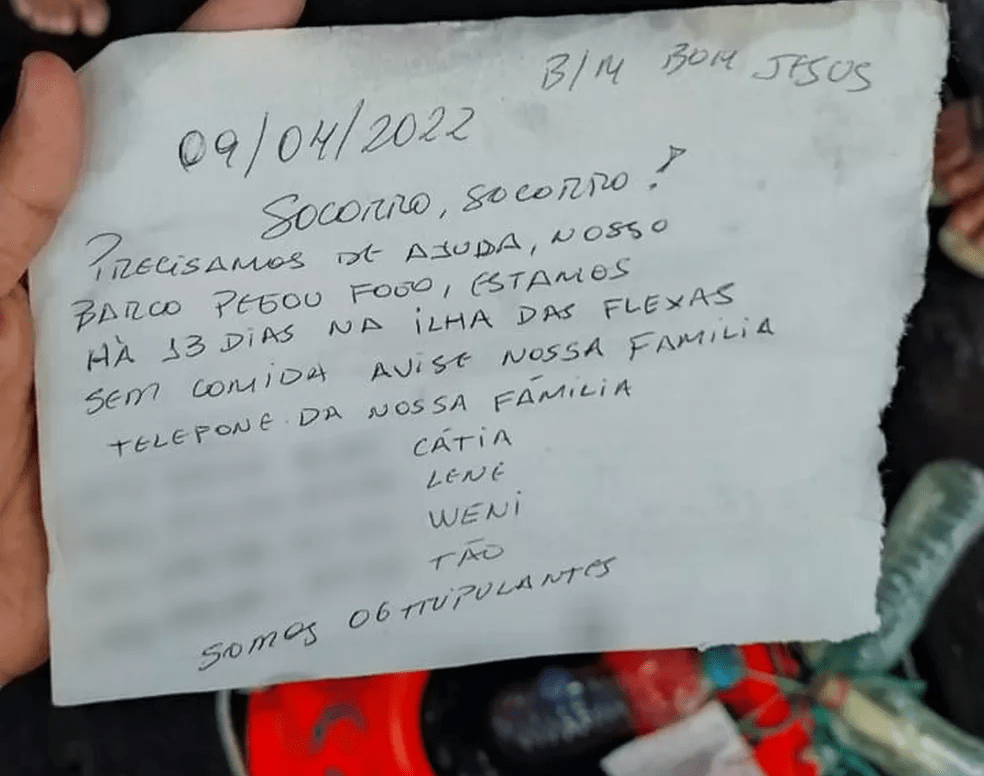 B/M BOM JESUS
09/04/2022
SOCORRO, SOCORRO!
PRECISAMOS DE AJUDA, NOSSO
BARCO PEGOU FOGO, ESTAMOS
HÀ 13 DIAS NA ILHA DAS FLEXAS
SEM COMIDA AVISE NOSSA FAMILIA
TELEFONE DA NOSSA FAMÍLIA
CÁTIA
LENE
WENI
TÃO
SOMOS 06 TRIPULANTES